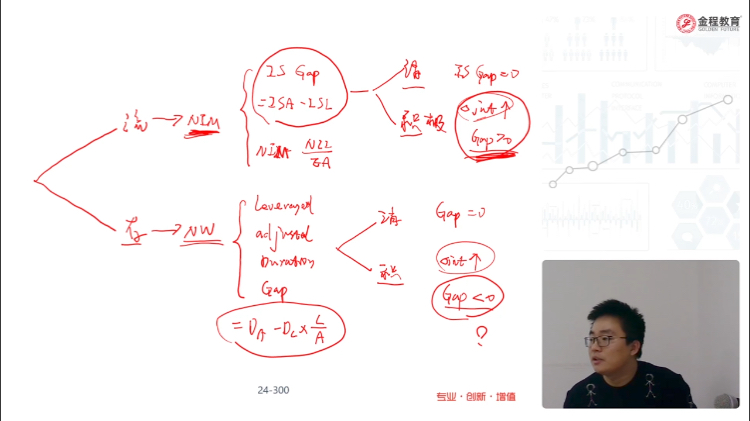 金程教育
GOLDEN FUTURE
流 → NIM
IS Gap
=ISA-ISL
NIM NII/EA
消 IS Gap=0
积极 ①int↑
Gap>0
存 → NW
Leveraged
adjusted
Duration
Gap
=D_A-D_L×L/A
消 Gap=0
积 ①int↑
Gap<0
?
24-300
专业·创新·增值